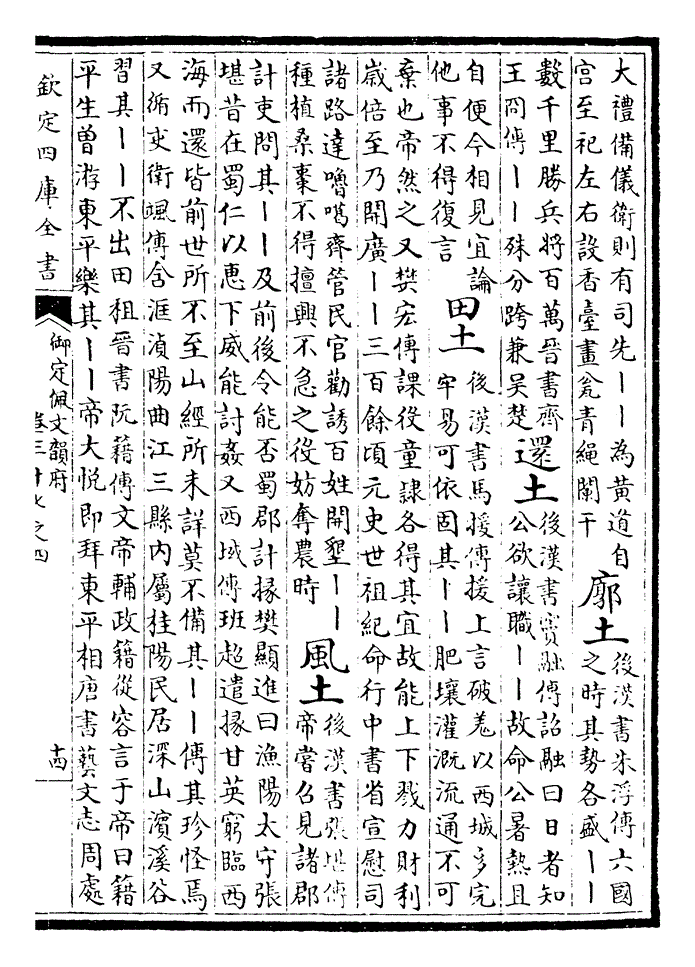 大禮備儀衛則有司先丨丨為黃道自
宫至祀左右設香臺畫瓮青繩闌干
廓土
後漢書朱浮傳六國
之時其勢各盛丨丨
數千里勝兵將百萬晉書齊
王冏傳丨丨殊分跨兼吳楚
還土
後漢書竇融傳詔融曰日者知
公欲讓職丨丨故命公暑熱且
自便今相見宜論
他事不得復言
田土
後漢書馬援傳援上言破羗以西城多完
牢易可依固其丨丨肥壤灌溉流通不可
棄也帝然之又樊宏傳課役童隷各得其宜故能上下戮力財利
歲倍至乃開廣丨丨三百餘頃元史世祖紀命行中書省宣慰司
諸路達嚕噶齊管民官勸誘百姓開墾丨丨
種植桑棗不得擅興不急之役妨奪農時
風土
後漢書張堪傳
帝嘗召見諸郡
計吏問其丨丨及前後令能否蜀郡計掾樊顯進曰漁陽太守張
堪昔在蜀仁以惠下威能討姦又西域傳班超遣掾甘英窮臨西
海而還皆前世所不至山經所未詳莫不備其丨丨傳其珍怪焉
又循吏衛颯傳含洭湞陽曲江三縣內屬桂陽民居深山濱溪谷
習其丨丨不出田租晉書阮籍傳文帝輔政籍從容言于帝曰籍
平生曾游東平樂其丨丨帝大悅即拜東平相唐書藝文志周處
欽定四庫全書
御定佩文韻府
卷三十七之四
十四